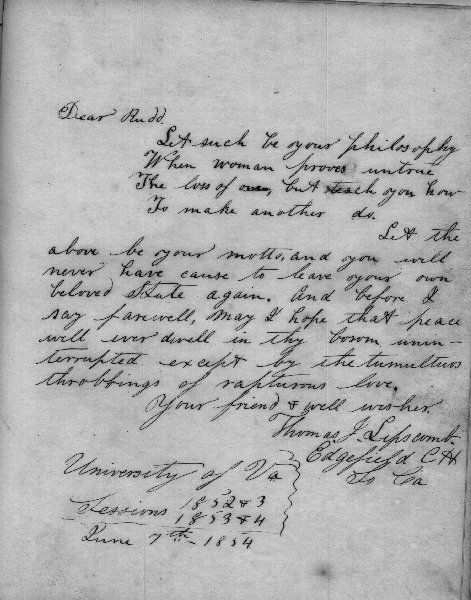 Dear Rudd.
Let such be your philosophy
When woman proves untrue
The loss of one, but teach you how
To make another do.
Let the
above be your motto, and you will
never have cause to leave your own
beloved State again. And before I
say farewell, may I hope that peace
will ever dwell in thy bosom unin-
terrupted except by the tumultuos
throbbings of rapturous love.
Your friend & well wisher.
Thomas J. Lipscomb.
Edgefield C H
So Ca
University of Va
Sessions 1852 & 3
1853 & 4
June 7th - 1854